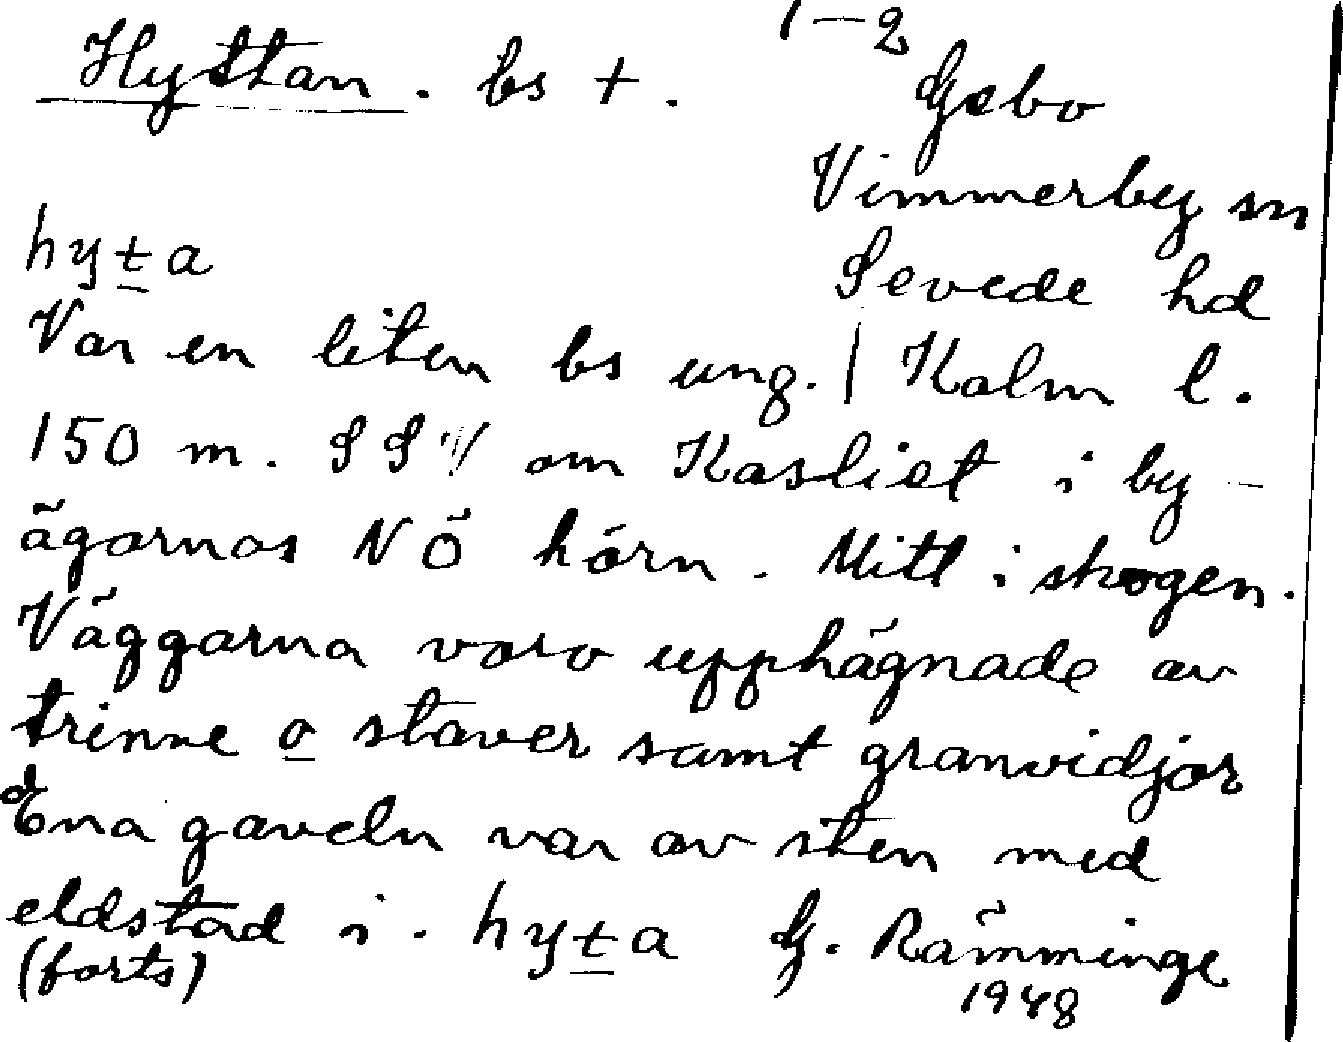 1-2
Hyttan. bs +.
Gebo
Vimmerby sn
Sevede hd
Kalm l.
hyta
Var en liten bs ung.
150 m. SSV om Kasliet i by-
ägornas NÖ hörn. Mitt i skogen.
Väggarna voro upphägnade av
trinne o staver samt granvidjor
Ena gaveln var av sten med
eldstad i. hyta G. Rämminge
(forts) 1948